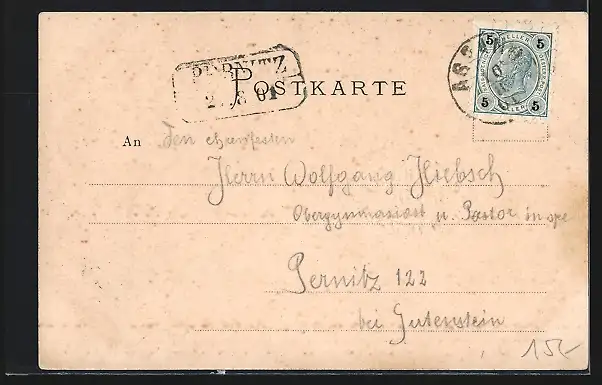 PERNITZ
2 8 01
POSTKARTE
5 HELLER 5
5 HELLER 5
An den ehrenfesten
Herrn Wolfgang Hiebsch
Obergymnasiast u. Pastor in spe
Pernitz 122
bei Gutenstein
15€